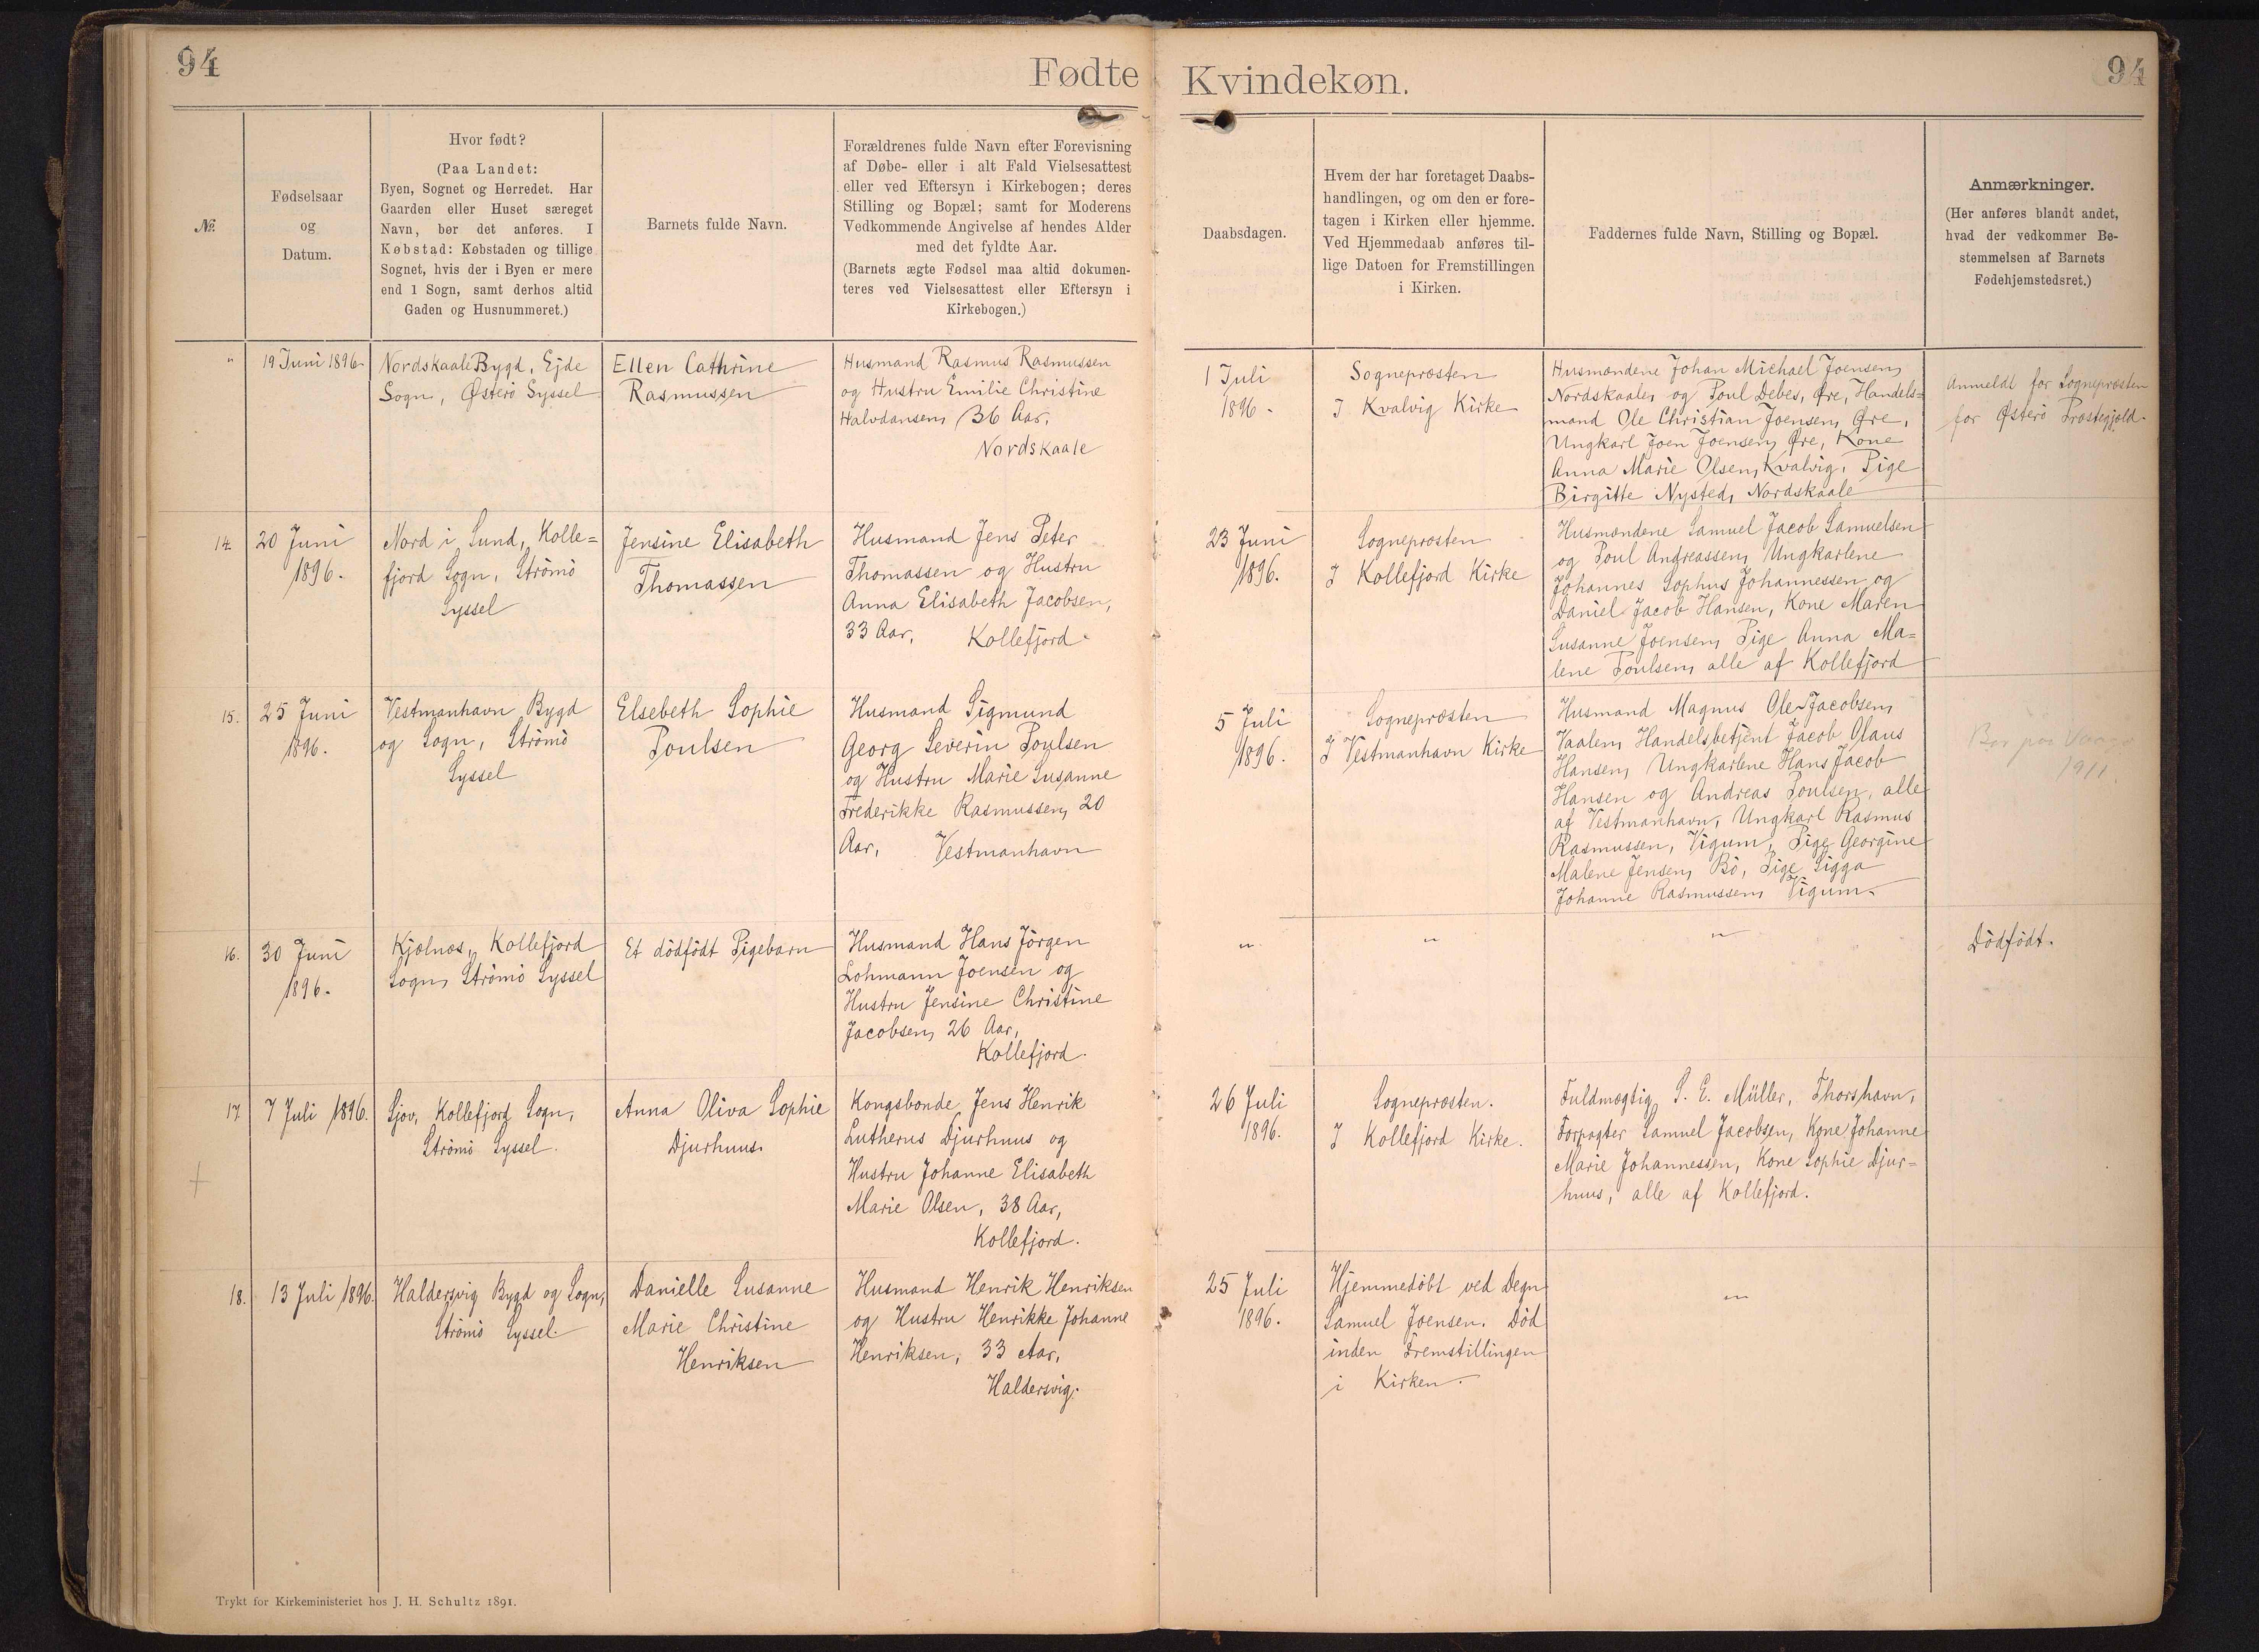 94
Fødte
Kvindekøn.
94
№
Fødselsaar
og
Datum.
Hvor født?
(Paa Landet:
Byen, Sognet og Herredet. Har
Gaarden eller Huset særeget
Navn, bør det anføres. I
Købstad: Købstaden og tillige
Sognet, hvis der i Byen er mere
end 1 Sogn, samt derhos altid
Gaden og Husnummeret.)
Barnets fulde Navn.
Forældrenes fulde Navn efter Forevisning
af Døbe- eller i alt Fald Vielsesattest
eller ved Eftersyn i Kirkebogen; deres
Stilling og Bopæl; samt for Moderens
Vedkommende Angivelse af hendes Alder
med det fyldte Aar.
(Barnets ægte Fødsel maa altid dokumen-
teres ved Vielsesattest eller Eftersyn i
Kirkebogen.)
Daabsdagen.
Hvem der har foretaget Daabs-
handlingen, og om den er fore-
tagen i Kirken eller hjemme.
Ved Hjemmedaab anføres til-
lige Datoen for Fremstillingen
i Kirken.
Faddernes fulde Navn, Stilling og Bopæl.
Anmærkninger.
(Her anføres blandt andet,
hvad der vedkommer Be-
stemmelsen af Barnets
Fødehjemstedsret.)
"
19 Juni 1896.
Nordskaale Bygd, Ejde
Sogn, Østerö Syssel
Ellen Cathrine
Rasmussen
Husmand Rasmus Rasmussen
og Hustru Emilie Christine
Halvdansen, 36 Aar,
Nordskaale
1 Juli
1896.
Sognepræsten
I Kvalvig Kirke
Husmændene Johan Michael Joensen,
Nordskaale, og Poul Debes, Øre, Handels=
mand Ole Christian Joensen, Øre,
Ungkarl Joen Joensen, Øre, Kone
Anna Marie Olsen, Kvalvig, Pige
Birgitte Nysted, Nordskaale
Anmeldt for Sognepræsten
for Østerö Præstegjæld.
14.
20 Juni
1896.
Nord i Sund, Kolle=
fjord Sogn, Strömö
Syssel
Jensine Elisabeth
Thomassen
Husmand Jens Peter
Thomassen og Hustru
Anna Elisabeth Jacobsen,
33 Aar, Kollefjord.
23 Juni
1896.
Sognepræsten
I Kollefjord Kirke
Husmændene Samuel Jacob Samuelsen
og Poul Andreassen, Ungkarlene
Johannes Sophus Johannessen og
Daniel Jacob Hansen, Kone Maren
Susanne Joensen, Pige Anna Ma=
lene Poulsen, alle af Kollefjord
15.
25 Juni
1896.
Vestmanhavn Bygd
og Sogn, Strömö
Syssel
Elsebeth Sophie
Poulsen
Husmand Sigmund
Georg Severin Poulsen
og Hustru Marie Susanne
Frederikke Rasmussen, 20
Aar, Vestmanhavn
5 Juli
1896.
Sognepræsten
I Vestmanhavn Kirke
Husmand Magnus Ole Jacobsen,
Vaalen, Handelsbetjent Jacob Olaus
Hansen, Ungkarlene Hans Jacob
Hansen og Andreas Poulsen, alle
af Vestmanhavn, Ungkarl Rasmus
Rasmussen, Vigum, Pige Georgine
Malene Jensen, Bö, Pige Sigga
Johanne Rasmussen, Vigum.
Bor paa
1911.
16.
30 Juni
1896.
Kjælnæs, Kollefjord
Sogn, Strömö Syssel
Et dödfödt Pigebarn
Husmand Hans Jörgen
Lohmann Joensen og
Hustru Jensine Christine
Jacobsen, 26 Aar,
Kollefjord.
"
"
"
Dödfödt.
17
7 Juli 1896.
Sjov, Kollefjord Sogn,
Strömö Syssel.
Anna Oliva Sophie
Djurhuus.
Kongsbonde Jens Henrik
Lutherus Djurhuus og
Hustru Johanne Elisabeth
Marie Olsen, 38 Aar,
Kollefjord.
26 Juli
1896.
Sognepræsten.
I Kollefjord Kirke.
Fuldmægtig S. E. Müller, Thorshavn,
Forpagter Samuel Jacobsen, Kone Johanne
Marie Johannessen, Kone Sophie Djur=
huus, alle af Kollefjord.
18.
13 Juli 1896.
Haldersvig Bygd og Sogn,
Strömö Syssel.
Danielle Susanne
Marie Christine
Henriksen
Husmand Henrik Henriksen
og Hustru Henrikke Johanne
Henriksen, 33 Aar,
Haldersvig.
25 Juli
1896.
Hjemmedöbt ved Degn
Samuel Joensen. Död
inden Fremstillingen
i Kirken.
"
Trykt for Kirkeministeriet hos J. H. Schultz 1891.